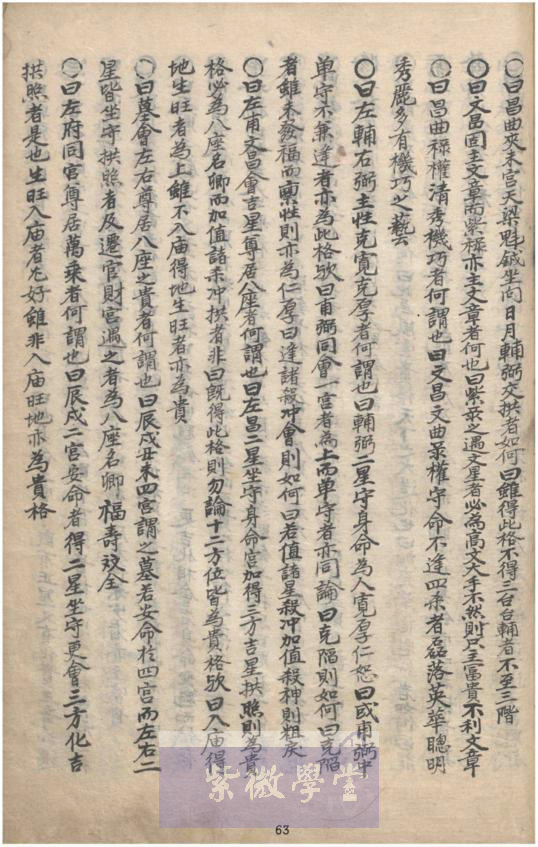 〇曰昌曲夾未宮天梁魁鉞坐向日月輔弼交拱者如何曰雖得此格不得三台台輔者不至三階
〇曰文昌固主文章而紫祿亦主文章者何也曰紫彔之遇文星者必為高文大手不然則只主富貴不利文章
〇曰昌曲祿權清秀機巧者何謂也曰文昌文曲彔權守命不逢四杀者磊落英華聰明
秀麗多有機巧之藝
〇曰左輔右弼主性克寬克厚者何謂也曰輔弼二星守身命為人寬厚仁恕曰或甫弼中
单守示兼逢者亦為此格欤曰甫弼同會一宮者為上而单守者亦同論曰克陷則如何曰克陷
者雖未發福而稟性則亦為仁厚曰逢諸殺冲會則如何曰若值諸星殺冲加值殺神則粗戾
〇曰左甫文昌會吉星尊居八座者何謂也曰左昌二星坐守身命宮加得三方吉星拱照則為貴
格必為八座名卿而加值諸杀冲拱者非曰既得此格則勿論十二方位皆為貴格欤曰入庙得
地生旺者為上雖不入庙得地生旺者亦為貴
〇曰墓會左右尊居八座之貴者何謂也曰辰戌丑未四宮謂之墓若安命於四宮而左右二
星皆坐守拱照者及遷官財宮遇之者為八座名卿福壽双全
〇曰左府同宮尊居萬乘者何謂也曰辰戌二宮安命者得二星坐守更會三方化吉
拱照者是也生旺入庙者尤好雖非入庙旺地亦為貴格
紫微學堂
63